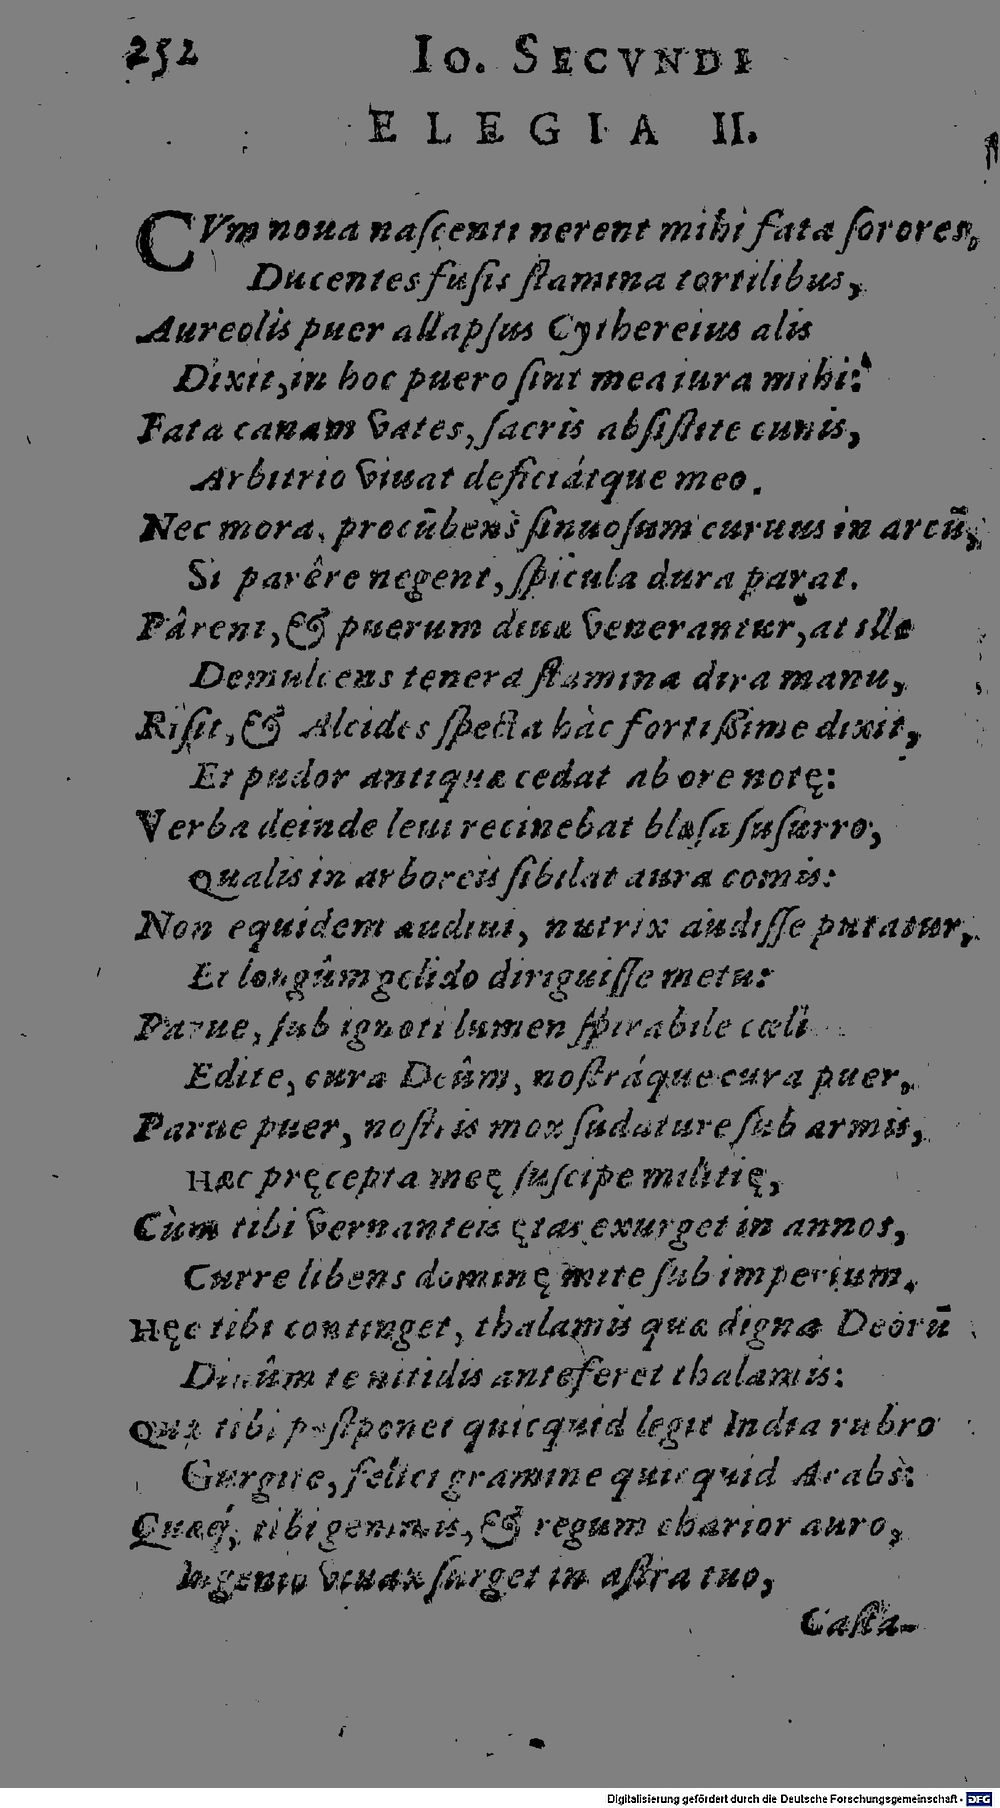 252 Io. SECVNDI
ELEGIA II.
CVm noua naſcenti nerent mihi fata ſorores,
Ducentes fuſis ſtamina tortilibus,
Aureolis puer allapſus Cythereius alis
Dixit, in hoc puero ſint mea iura mihi:
Fata canam vates, ſacris abſiſtite cunis,
Arbitrio viuat deficiátque meo.
Nec mora, procūbens ſinuoſum curuus in arcū,
Si parêre negent, ſpicula dura parat.
Pârent, & puerum diuæ venerantur, at ille
Demulcens tenera ſtamina dira manu,
Riſit, & Alcides ſpecta hàc fortiſſime dixit,
Et pudor antiquæ cedat ab ore notę:
Verba deinde leui recinebat blæſa ſuſurro,
Qualis in arboreis ſibilat aura comis:
Non equidem audiui, nutrix audiſſe putatur,
Et longûm gelido diriguiſſe metu:
Parue, ſub ignoti lumen ſpirabile cœli
Edite, cura Deûm, noſtráque cura puer,
Parue puer, noſtris mox ſudature ſub armis,
Hæc pręcepta meę ſuſcipe militię,
Cùm tibi vernanteis ętas exurget in annos,
Curre libens dominę mite ſub imperium.
Hęc tibi continget, thalamis quæ digna Deorū
Diuûm te nitidis anteferet thalamis:
Quæ tibi poſtponet quicquid legit India rubro
Gurgite, felici gramine quicquid Arabs:
Quæq́; tibi gemmis, & regum charior auro,
Ingenio viuax ſurget in aſtra tuo,
Caſta-
Digitalisierung gefördert durch die Deutsche Forschungsgemeinschaft - DFG